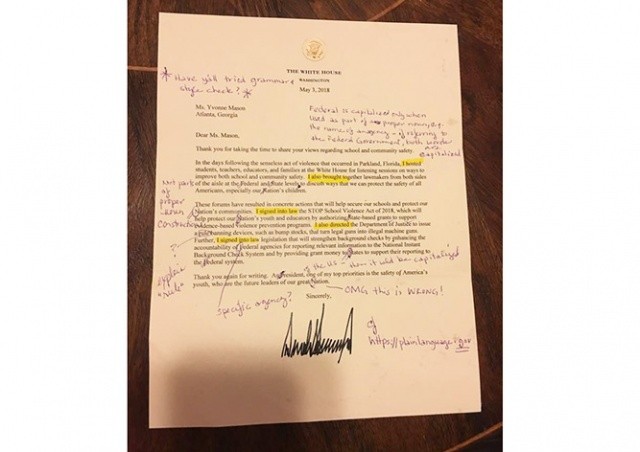 THE WHITE HOUSE
WASHINGTON
* Have y'all tried grammar &
style check? *
May 3, 2018
Ms. Yvonne Mason
Atlanta, Georgia
Federal is capitalized only when
used as part of a proper noun,
the name of an agency - if referring to
the Federal Government, both words
are
capitalized
Dear Ms. Mason,
Thank you for taking the time to share your views regarding school and community safety.
In the days following the senseless act of violence that occurred in Parkland, Florida, I hosted
students, teachers, educators, and families at the White House for listening sessions on ways to
improve both school and community safety. I also brought together lawmakers from both sides
of the aisle at the Federal and State levels to discuss ways that we can protect the safety of all
Americans, especially our Nation's children.
Not part
of
proper
noun
construction
These forums have resulted in concrete actions that will help secure our schools and protect our
Nation's communities. I signed into law the STOP School Violence Act of 2018, which will
help protect our Nation's youth and educators by authorizing State-based grants to support
evidence-based violence prevention programs. I also directed the Department of Justice to issue
a rule banning devices, such as bump stocks, that turn legal guns into illegal machine guns.
Further, I signed into law legislation that will strengthen background checks by enhancing the
accountability of Federal agencies for reporting relevant information to the National Instant
Background Check System and by providing grant money to States to support their reporting to
the Federal system.
explain
"rule"
of the US - then it would be capitalized
Thank you again for writing. As President, one of my top priorities is the safety of America's
youth, who are the future leaders of our great Nation.
OMG this is WRONG!
Sincerely,
specific agency?
cf
https://plainlanguage.gov